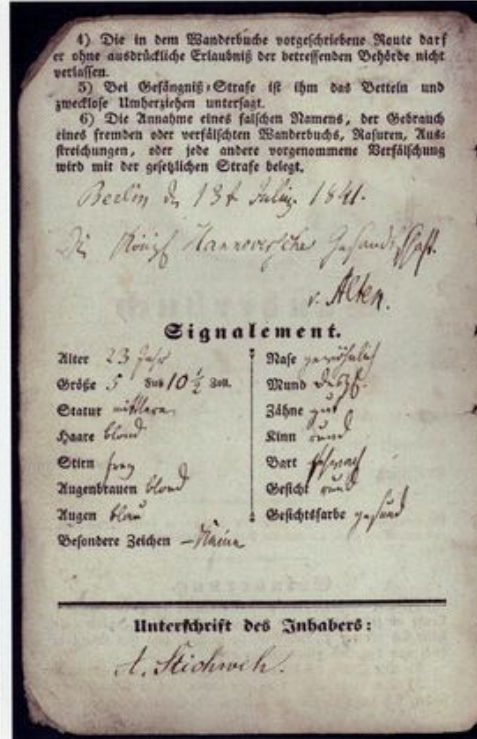 4) Die in dem Wanderbuche vorgeschriebene Route darf
er ohne ausdrückliche Erlaubniß der betreffenden Behörde nicht
verlassen.
5) Bei Gefängniß-Strafe ist ihm das Betteln und
zwecklose Umherziehen untersagt.
6) Die Annahme eines falschen Namens, der Gebrauch
eines fremden oder verfälschten Wanderbuchs, Rasuren, Aus-
streichungen, oder jede andere vorgenommene Verfälschung
wird mit der gesetzlichen Strafe belegt.
Berlin d. 13t Julius 1841.
Die Königl Hannoversche Gesandtschaft.
v. Alten.
Signalement.
Alter 23 Jahr
Größe 5 Fuß 10 ½ Zoll.
Statur mittlere
Haare blond
Stirn frey
Augenbrauen blond
Augen blau
Besondere Zeichen – Keine
Nase gewöhnlich
Mund desgl.
Zähne gut
Kinn rund
Bart schwach
Gesicht rund
Gesichtsfarbe gesund
Unterschrift des Inhabers:
A. Stichweh.